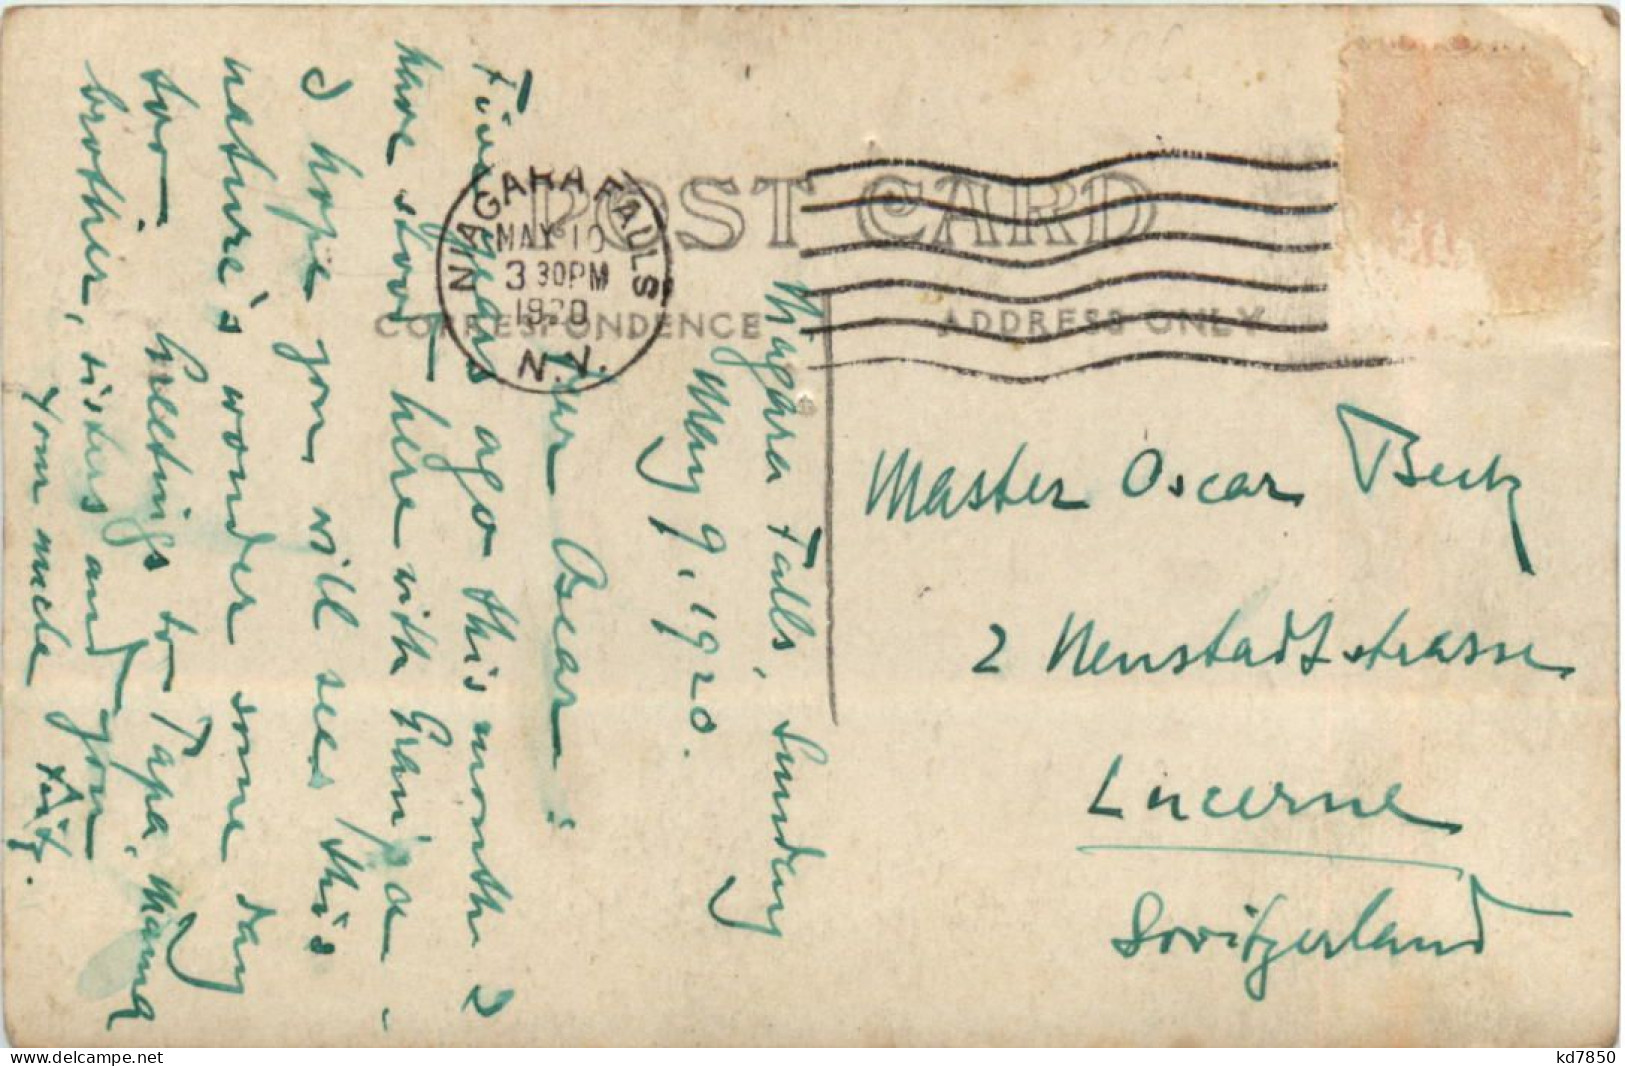 POST CARD
CORRESPONDENCE
ADDRESS ONLY
NIAGARA FALLS
MAY 10
3 30PM
1920
N.Y.
Niagara Falls, Sunday
May 9, 1920.
Dear Oscar:
Five years ago this month I
have stood here with Grandpa -
I hope you will see this
nature's wonder some day
too - Greetings to Papa, Mama
brother, sisters and you
Your uncle Fritz.
Master Oscar
2 Neustadtstrasse
Lucerne
Switzerland
delcampe.net
kd7850